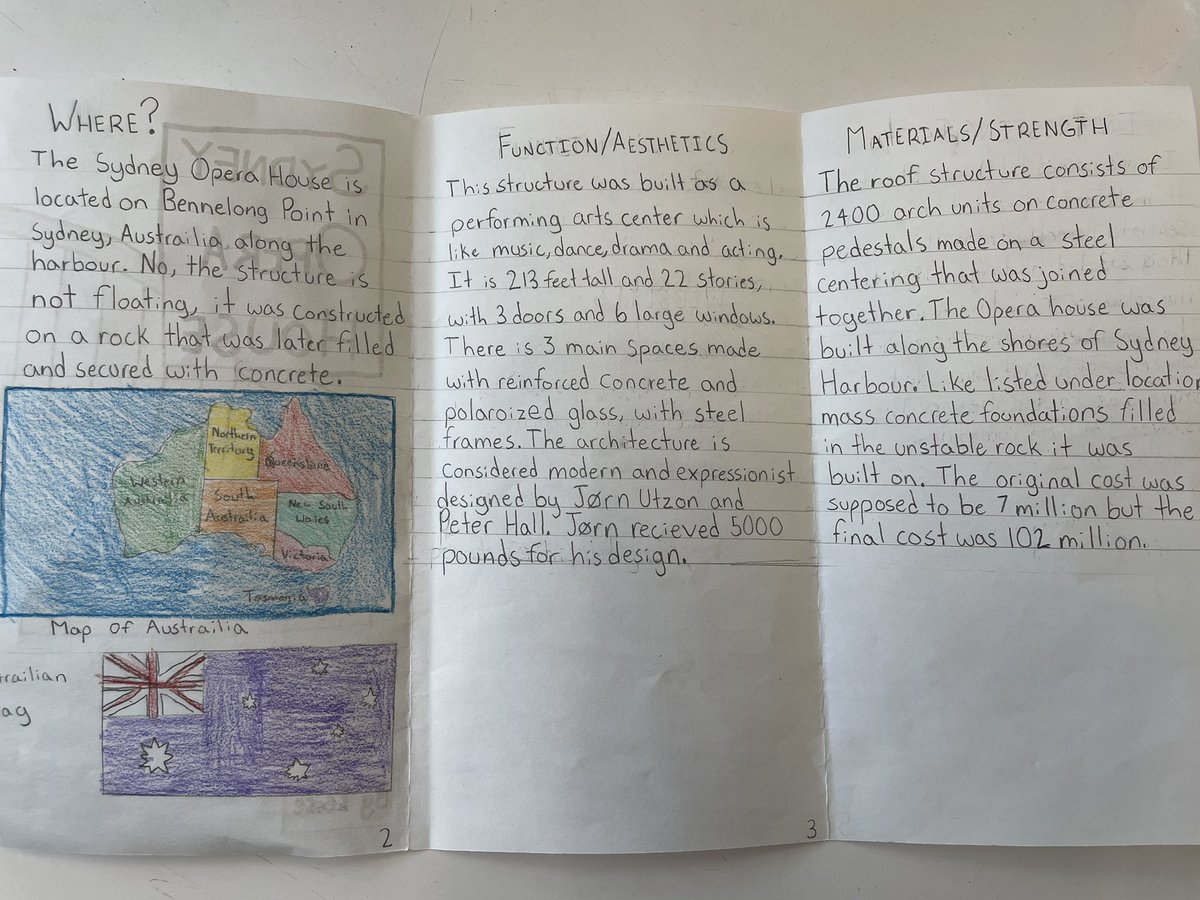 WHERE?
The Sydney Opera House is
located on Bennelong Point in
Sydney, Austrailia along the
harbour. No, the structure is
not floating, it was constructed
on a rock that was later filled
and secured with concrete.
Northern
Territory
Queensland
Western
Australia
South
Austrailia
New South
Wales
Victoria
Tasmania
Map of Austrailia
trailian
ag
2
FUNCTION/AESTHETICS
This structure was built as a
performing arts center which is
like music, dance, drama and acting.
It is 213 feet tall and 22 stories,
with 3 doors and 6 large windows.
There is 3 main spaces made
with reinforced concrete and
polaroized glass, with steel
frames. The architecture is
considered modern and expressionist
designed by Jørn Utzon and
Peter Hall. Jørn recieved 5000
pounds for his design.
3
MATERIALS/STRENGTH
The roof structure consists of
2400 arch units on concrete
pedestals made on a steel
centering that was joined
together. The Opera house was
built along the shores of Sydney
Harbour. Like listed under location
mass concrete foundations filled
in the unstable rock it was
built on. The original cost was
supposed to be 7 million but the
final cost was 102 million.
SYDNEY
OPERA
HOUSE